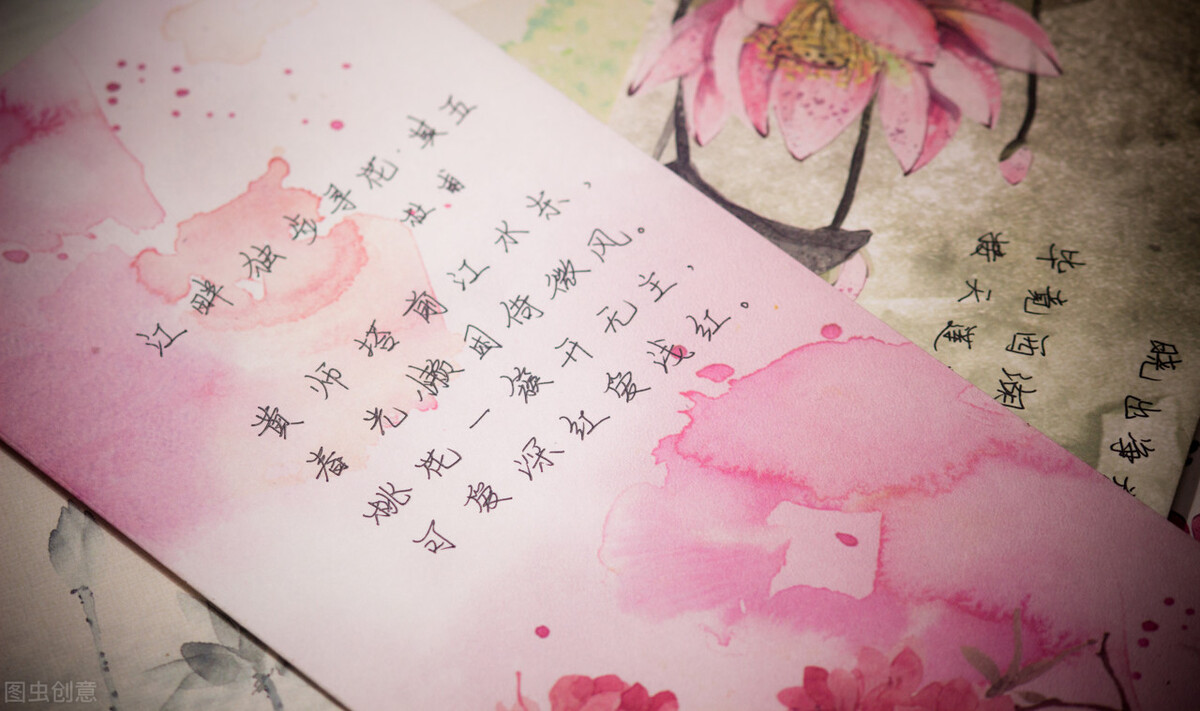 江畔独步寻花·其五
杜甫
黄师塔前江水东，
春光懒困倚微风。
桃花一簇开无主，
可爱深红爱浅红。
晓出净
毕竟西湖
接天莲
图虫创意